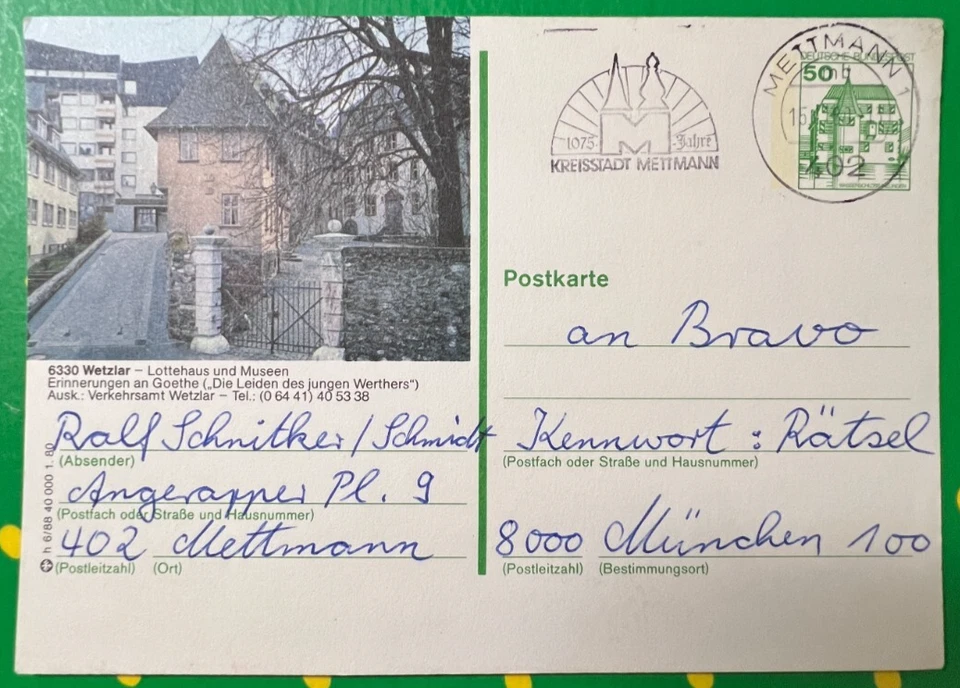 6330 Wetzlar – Lottehaus und Museen
Erinnerungen an Goethe („Die Leiden des jungen Werthers“)
Ausk.: Verkehrsamt Wetzlar – Tel.: (0 64 41) 40 53 38
Ralf Schnitker / Schmidt
(Absender)
Angerapper Pl. 9
(Postfach oder Straße und Hausnummer)
402 Mettmann
(Postleitzahl) (Ort)
h 6/88 40 000 1. 80
1075 Jahre
M
KREISSTADT METTMANN
METTMANN 1
402
DEUTSCHE BUNDESPOST
50
Postkarte
an Bravo
Kennwort : Rätsel
(Postfach oder Straße und Hausnummer)
8000 München 100
(Postleitzahl) (Bestimmungsort)